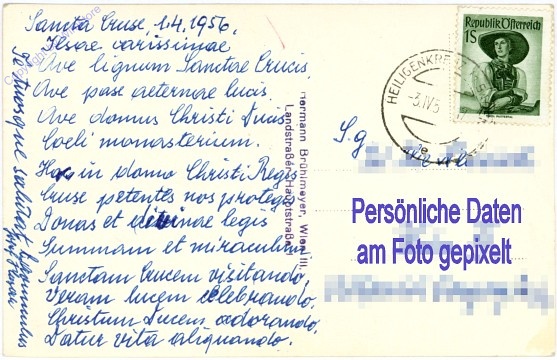 Sancta Cruse, 1.4.1956.
Ilsae carissimae
Ave lignum Sanctae Crucis,
Ave pase aeternae lucis.
Ave domus Christi Duis
Coeli monasterium.
Hos in domo Christi Regis
Cruse petentes nos protege
Donas et divinae legis
Summam et miraculum
Sanctam Crucem visitando,
Veram lucem celebrando,
Christum Ducem adorando,
Datur vita aliquando.
Te tuosque salutat
Hermann Brühlmeyer, Wien III.,
Landstraßer Hauptstraße
Republik Österreich
1S
HEILIGENKRE
-3.IV.5
S.g
Persönliche Daten
am Foto gepixelt